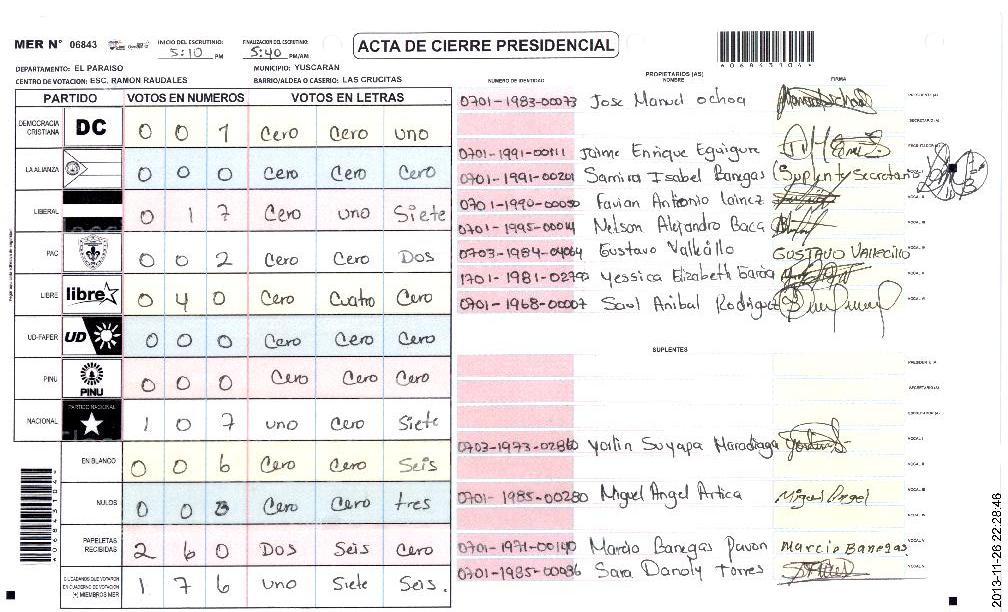 MER N° 06843
INICIO DEL ESCRUTINIO: 5:10 PM
FINALIZACION DEL ESCRUTINIO: 5:40 PM/AM
ACTA DE CIERRE PRESIDENCIAL
0 6 8 4 3 1 0 4 4
DEPARTAMENTO: EL PARAISO MUNICIPIO: YUSCARAN
CENTRO DE VOTACION: ESC. RAMON RAUDALES BARRIO/ALDEA O CASERIO: LAS CRUCITAS
PARTIDO VOTOS EN NUMEROS VOTOS EN LETRAS
DEMOCRACIA CRISTIANA DC 0 0 1 Cero Cero uno
LA ALIANZA 0 0 0 Cero Cero Cero
LIBERAL 0 1 7 Cero uno Siete
PAC 0 0 2 Cero Cero Dos
LIBRE libre 0 4 0 Cero Cuatro Cero
UD-FAPER UD 0 0 0 Cero Cero Cero
PINU PINU 0 0 0 Cero Cero Cero
NACIONAL PARTIDO NACIONAL 1 0 7 uno Cero Siete
EN BLANCO 0 0 6 Cero Cero Seis
NULOS 0 0 3 Cero Cero tres
PAPELETAS RECIBIDAS 2 6 0 Dos Seis Cero
CIUDADANOS QUE VOTARON EN CUADERNO DE VOTACION (+) MIEMBROS MER 1 7 6 uno Siete Seis.
PROPIETARIOS (AS)
NUMERO DE IDENTIDAD NOMBRE FIRMA
0701-1983-00073 Jose Manuel Ochoa
SECRETARIO (A)
0701-1991-00111 Jaime Enrique Eguigure
0701-1991-00201 Samira Isabel Banegas (Suplente Secretario
0701-1990-00050 Favian Antonio Lainez
0701-1995-00014 Nelson Alejandro Baca
0703-1984-04064 Gustavo Vallecillo GUSTAVO Vallecillo
1701-1981-02792 Yessica Elizabeth Garcia
0701-1968-00007 Saiol Anibal Rodriguez
SUPLENTES
PRESIDENTE (A)
SECRETARIO (A)
ESCRUTADOR (A)
0703-1973-02860 Yorlin Suyapa Maradiaga VOCAL I
VOCAL II
0701-1985-00280 Miguel Angel Artica Miguel Angel VOCAL III
VOCAL IV
0701-1971-00140 Marcio Banegas Pavon Marcio Banegas. VOCAL V
0701-1985-00086 Sara Danoly Torres
2013-11-26 22:28:46